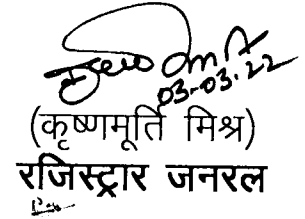 03-03-22
(कृष्णमूर्ति मिश्र)
रजिस्ट्रार जनरल